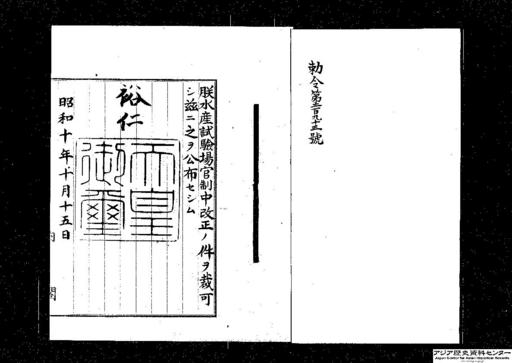 勅令第百九十三號
朕水産試驗場官制中改正ノ件ヲ裁可
シ茲ニ之ヲ公布セシム
裕仁
天皇
御璽
昭和十年十月十五日
内閣
アジア歴史資料センター
Japan Center for Asian Historical Records